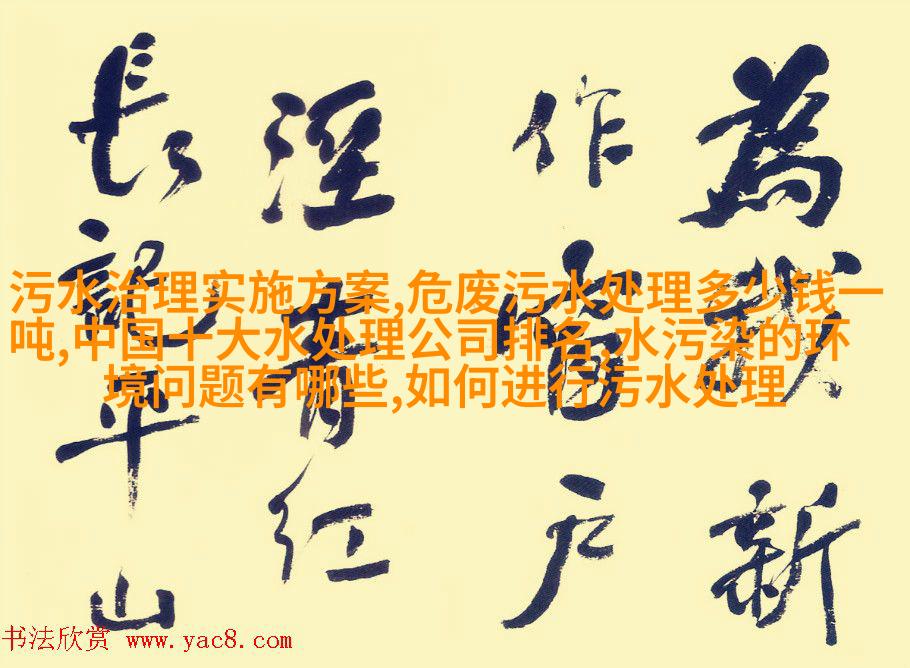 為我新
作窗户
溼青红
長記平山
污水治理实施方案,危废污水处理多少钱一
吨,中国十大水处理公司排名,水污染的环
境问题有哪些,如何进行污水处理
书法欣赏 www.yac8.com